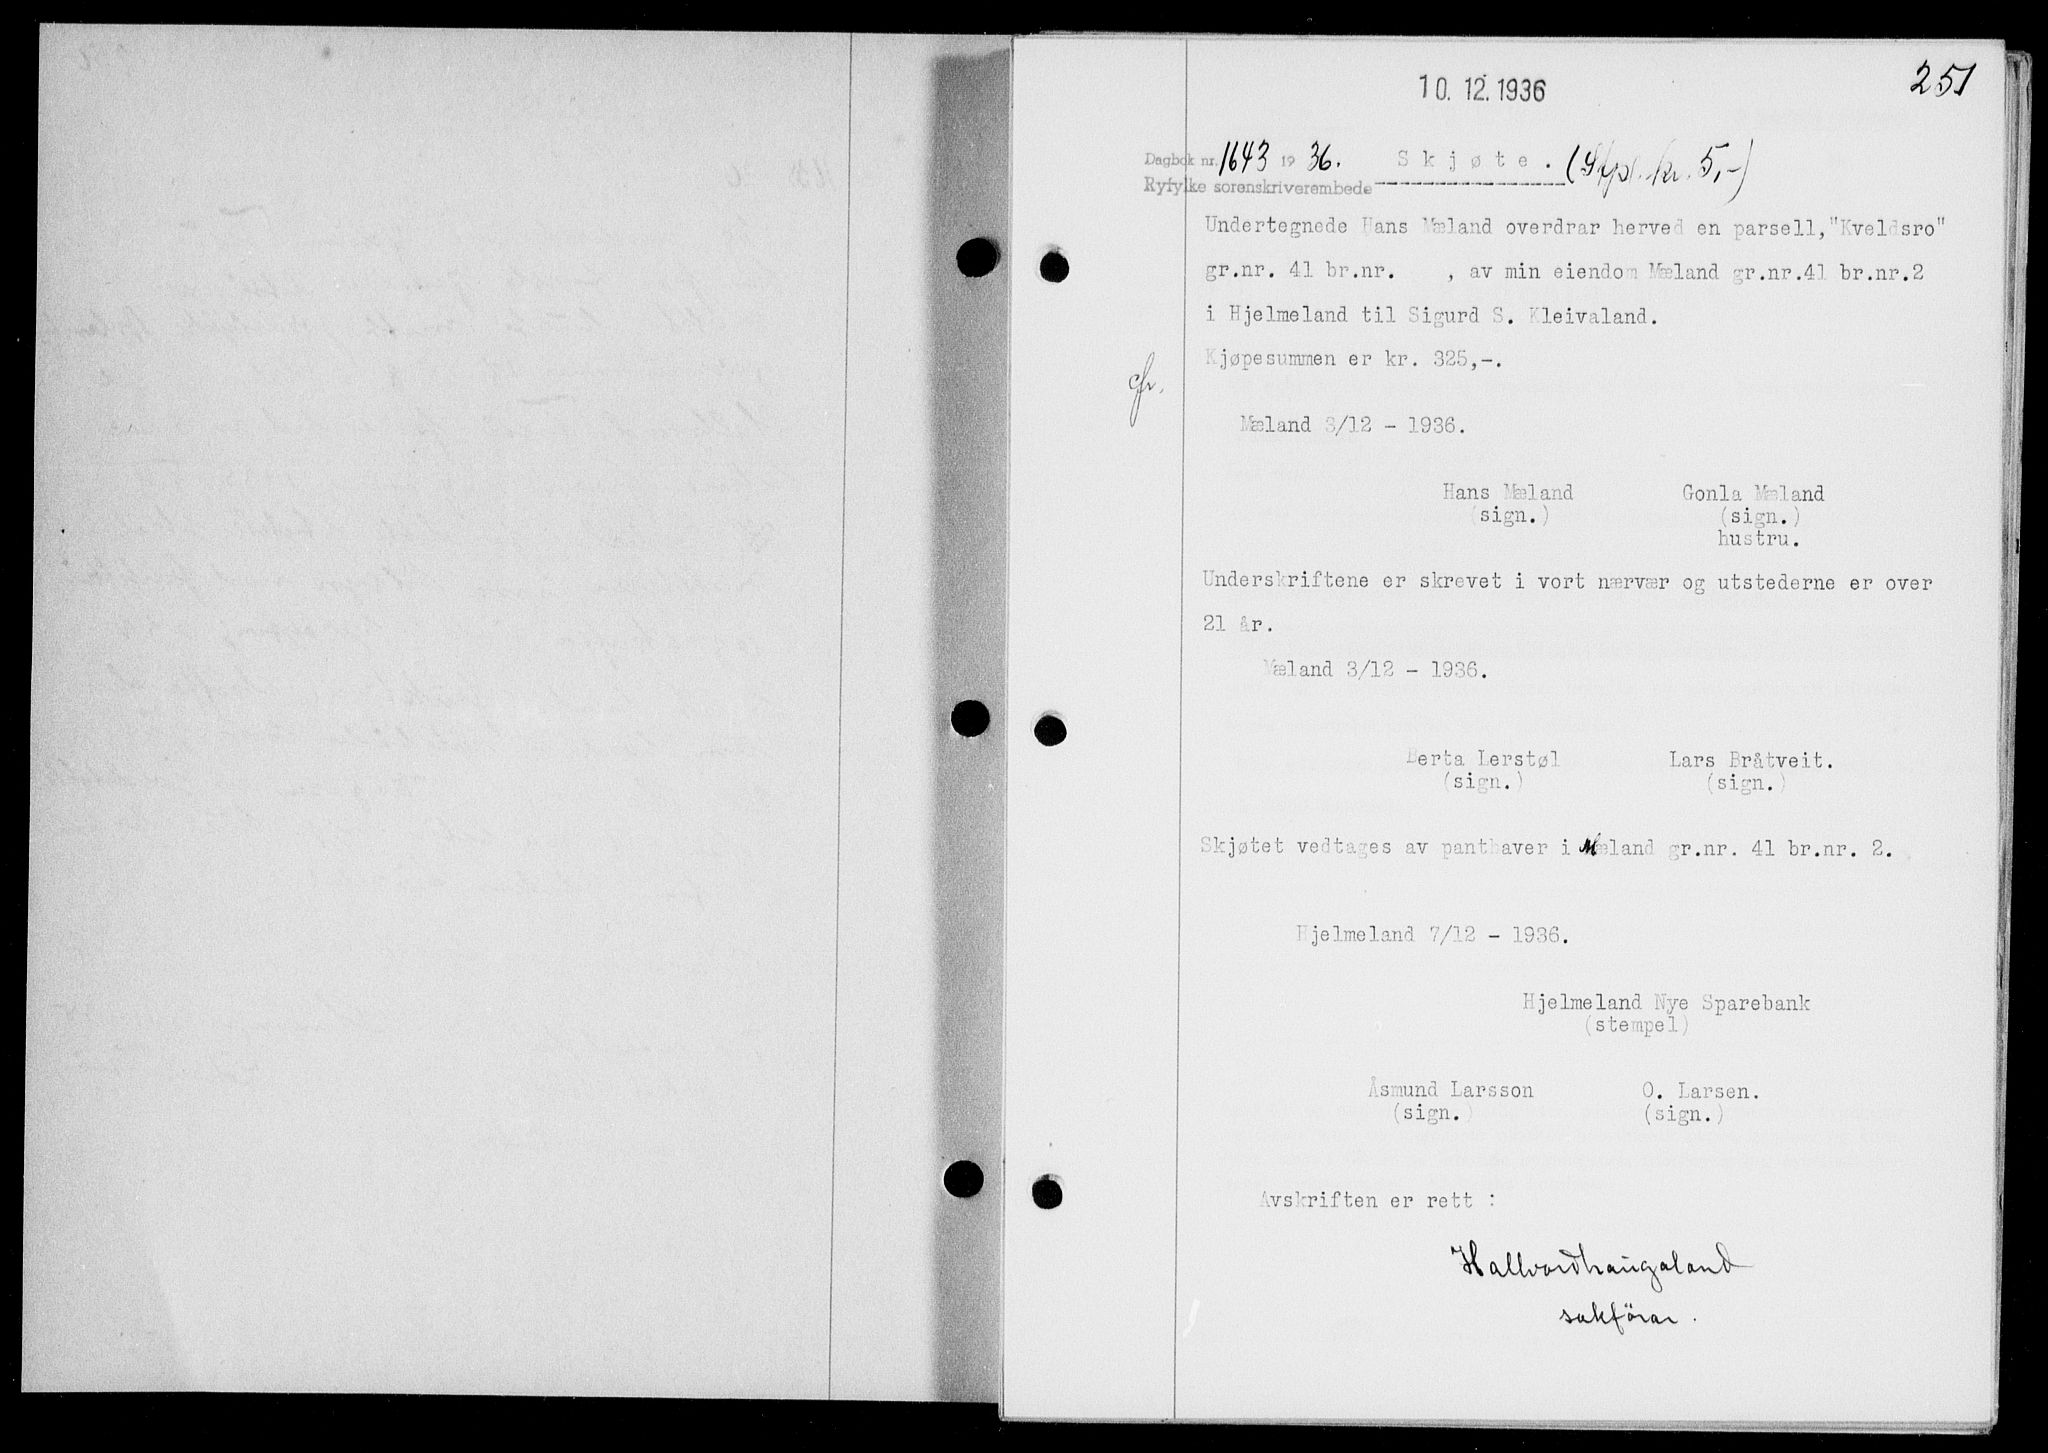 10.12.1936
251
Dagbok nr. 1643 1936. Skjøte. (Stpl. kr. 5,-)
Ryfylke sorenskriverembede
Undertegnede Hans Mæland overdrar herved en parsell, "Kveldsro"
gr.nr. 41 br.nr. , av min eiendom Mæland gr.nr.41 br.nr.2
i Hjelmeland til Sigurd S. Kleivaland.
Kjøpesummen er kr. 325,-.
cfr.
Mæland 3/12 - 1936.
Hans Mæland Gonla Mæland
(sign.) (sign.)
hustru.
Underskriftene er skrevet i vort nærvær og utstederne er over
21 år.
Mæland 3/12 - 1936.
Berta Lerstøl Lars Bråtveit.
(sign.) (sign.)
Skjøtet vedtages av panthaver i Mæland gr.nr. 41 br.nr. 2.
Hjelmeland 7/12 - 1936.
Hjelmeland Nye Sparebank
(stempel)
Åsmund Larsson O. Larsen.
(sign.) (sign.)
Avskriften er rett :
Hallvard Haugaland
sakförar.